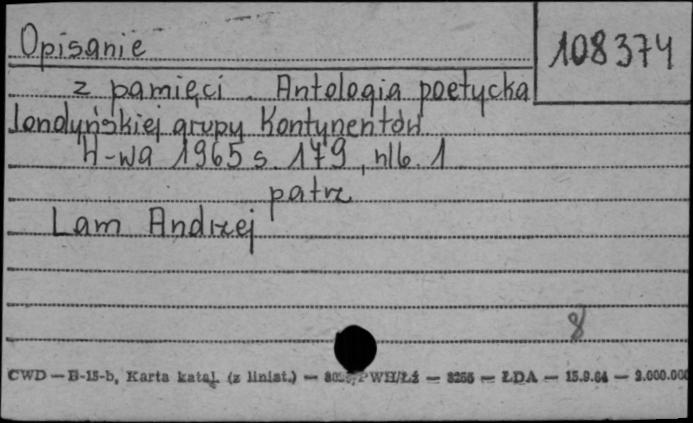 Opisanie
108374
z pamięci. Antologia poetycka
londyńskiej grupy Kontynentów
W-wa 1965 s. 179, nlb. 1
patrz
Lam Andrzej
8
CWD — B-15-b, Karta katal. (z liniat.) — PWH/Łź — 8255 — ŁDA — 15.9.64 — 2.000.000